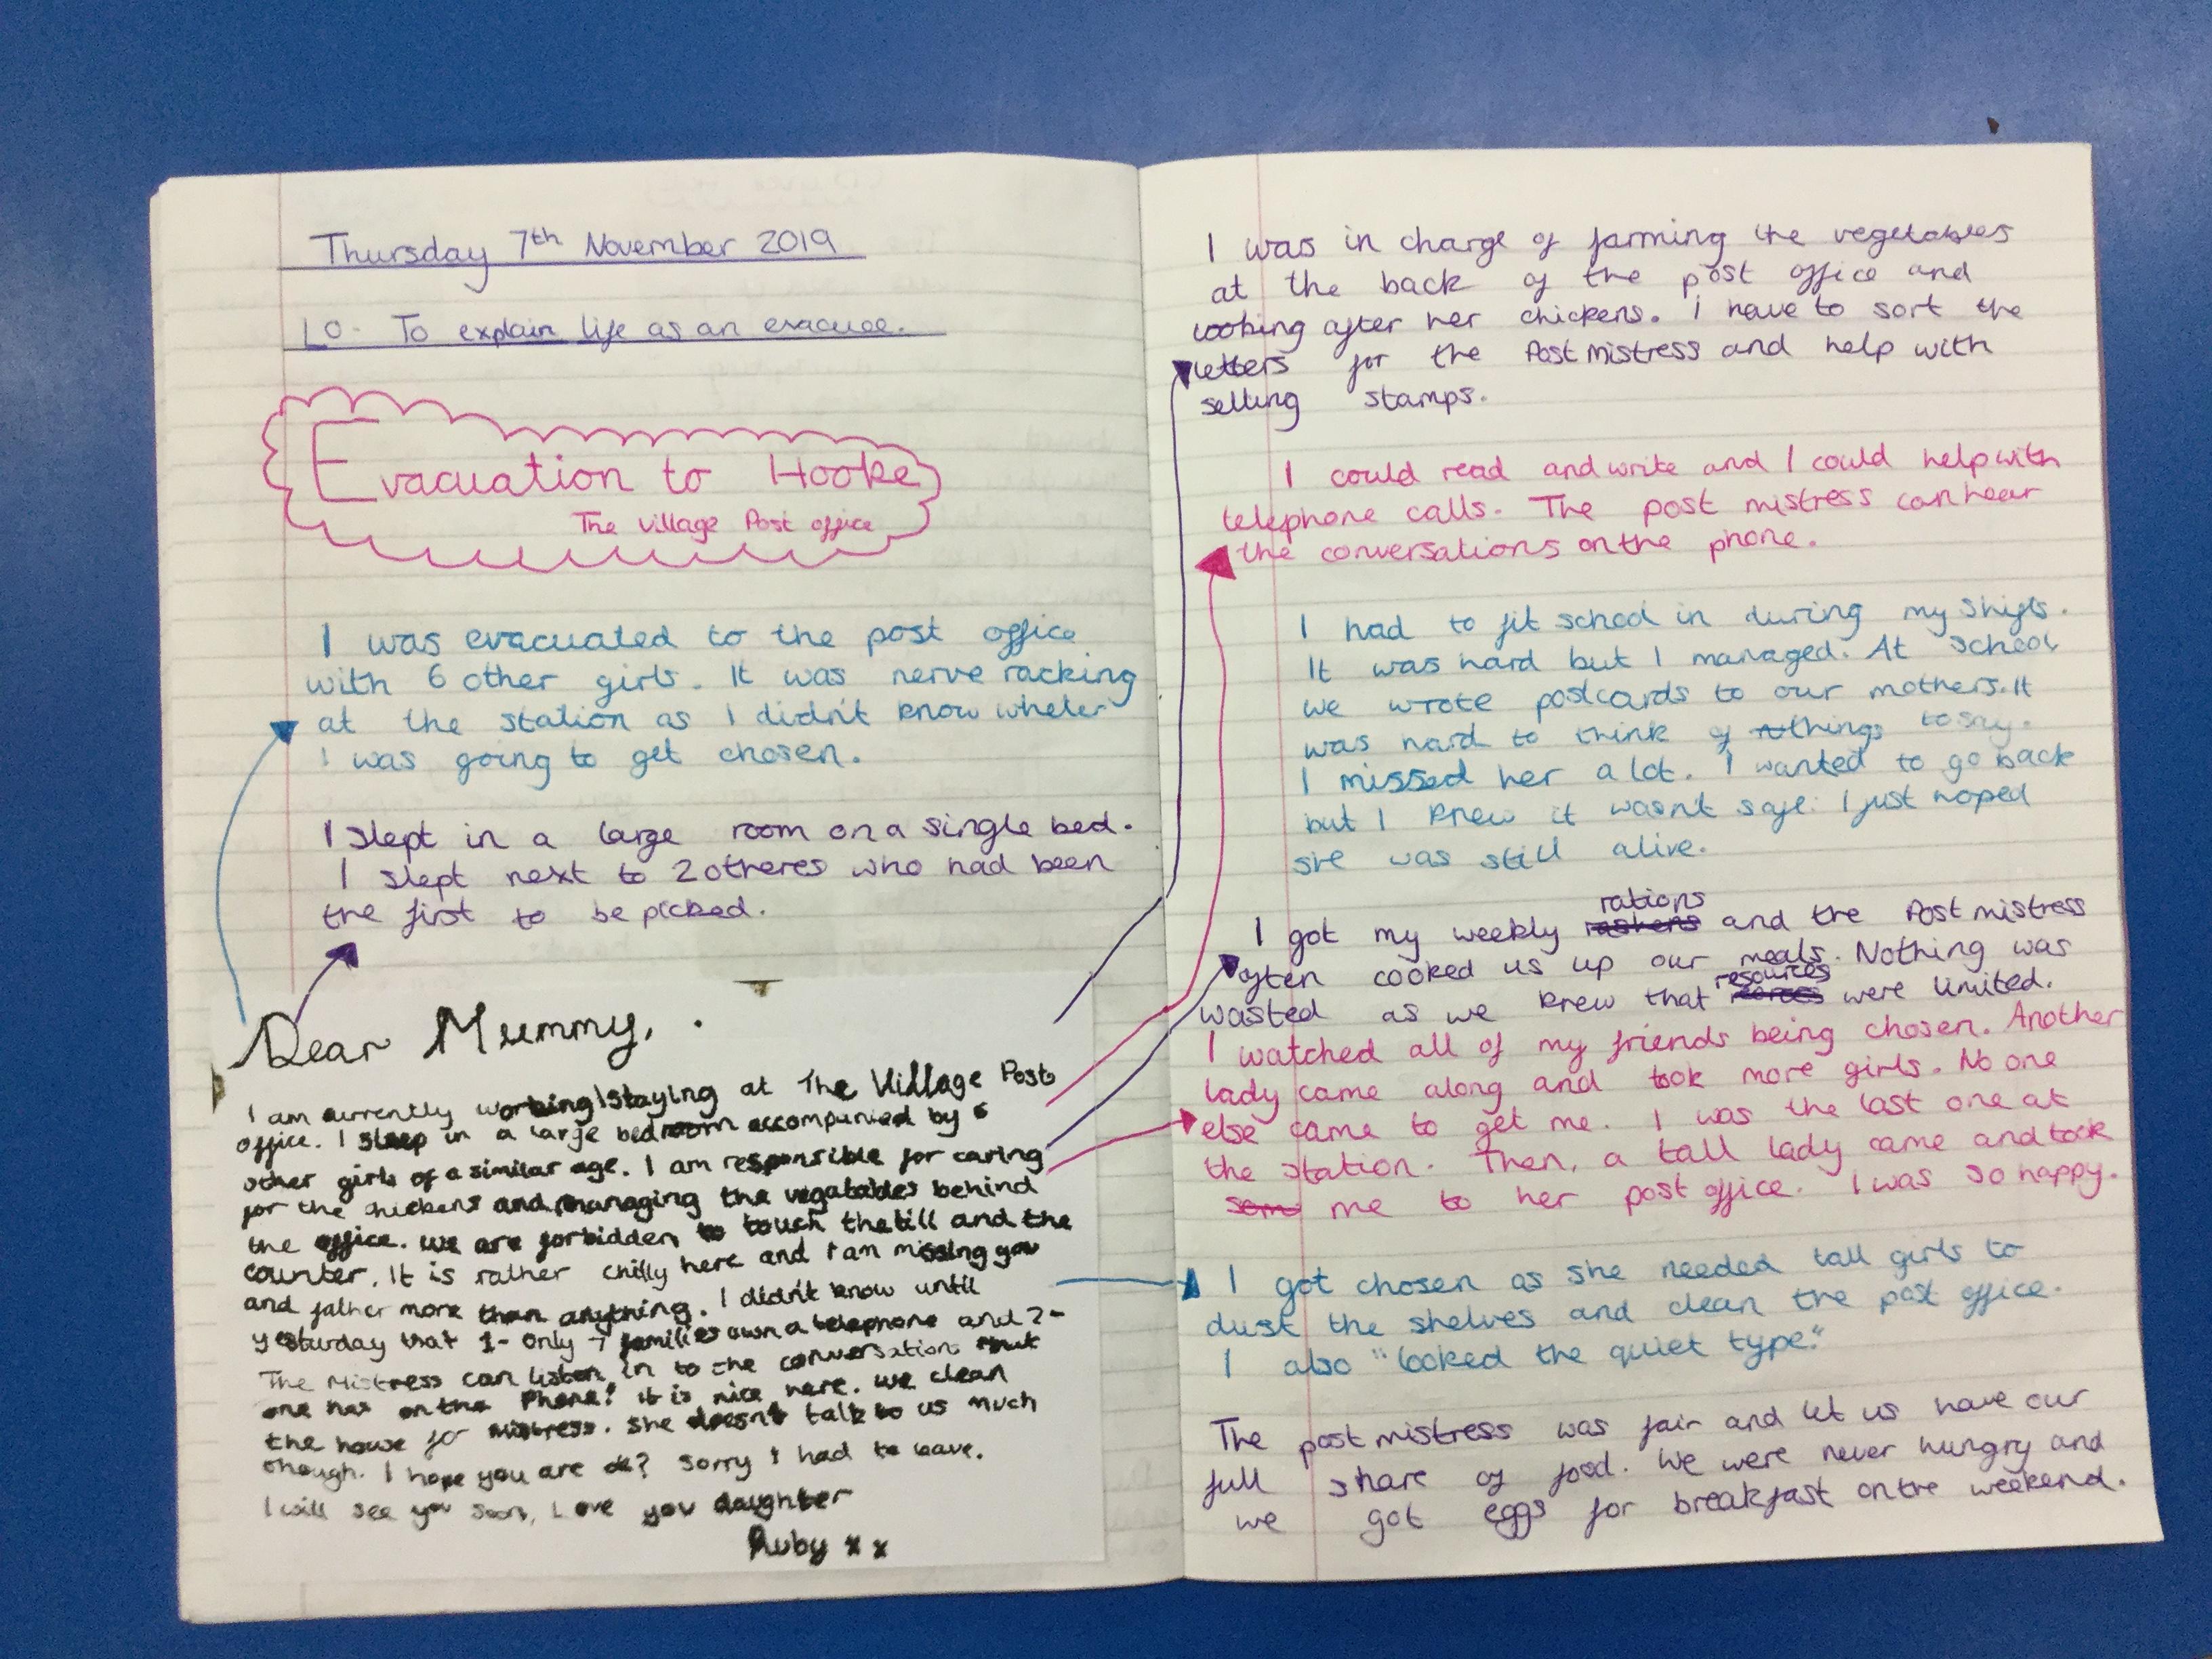 Thursday 7th November 2019
LO- To explain life as an evacuee.
Evacuation to Hooke
The village Post office
I was evacuated to the post office
with 6 other girls. It was nerve racking
at the station as I didn't know wheter
I was going to get chosen.
I slept in a large room on a single bed.
I slept next to 2 otheres who had been
the first to be picked.
Dear Mummy,
I am currently working\staying at The Village Post
office. I sleep in a large bedroom accompanied by 6
other girls of a similar age. I am responsible for caring
for the chickens and managing the vegatables behind
the office. We are forbidden to touch the till and the
counter. It is rather chilly here and I am missing you
and father more than anything. I didn't know until
yesturday that 1- only 7 families own a telephone and 2-
The Mistress can listen in to the conversation that
one has on the Phone! it is nice here. We clean
the house for mistress. She doesn't talk to us much
though. I hope you are ok? Sorry I had to leave.
I will see you soon, Love you daughter
Ruby x x
I was in charge of farming the vegetables
at the back of the post office and
looking after her chickens. I have to sort the
letters for the Postmistress and help with
selling stamps.
I could read and write and I could help with
telephone calls. The post mistress can hear
the conversations on the phone.
I had to fit school in during my shifts.
It was hard but I managed. At school
we wrote postcards to our mothers. It
was hard to think of things to say.
I missed her a lot. I wanted to go back
but I knew it wasn't safe. I just hoped
she was still alive.
rations
I got my weekly rashens and the Postmistress
often cooked us up our meals. Nothing was
resources
wasted as we knew that were limited.
I watched all of my friends being chosen. Another
lady came along and took more girls. No one
else came to get me. I was the last one at
the station. Then, a tall lady came and took
some me to her post office. I was so happy.
I got chosen as she needed tall girls to
dust the shelves and clean the post office.
I also "looked the quiet type."
The postmistress was fair and let us have our
full share of food. We were never hungry and
we got eggs for breakfast on the weekend.